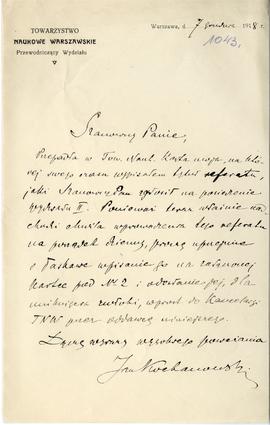 TOWARZYSTWO
NAUKOWE WARSZAWSKIE
Przewodniczący Wydziału
Warszawa, d. 7 grudnia 1918 r.
1043.
Szanowny Panie,
Przepadła w Tow. Nauk. kartka moja, na któ-
rej swego czasu wypisałem tytuł referatu,
jaki Szanowny Pan zgłosił na posiedzenie
wydziału II. Ponieważ teraz właśnie nad-
chodzi chwila wprowadzenia tego referatu
na porządek dzienny, proszę uprzejmie
o łaskawe wpisanie go na załączonej
kartce pod № 2 i odesłanie jej, dla
uniknięcia zwłoki, wprost do Kancelarji
TNW przez oddawcę niniejszego.
Łączę wyrazy wysokiego poważania
Jan Kochanowski